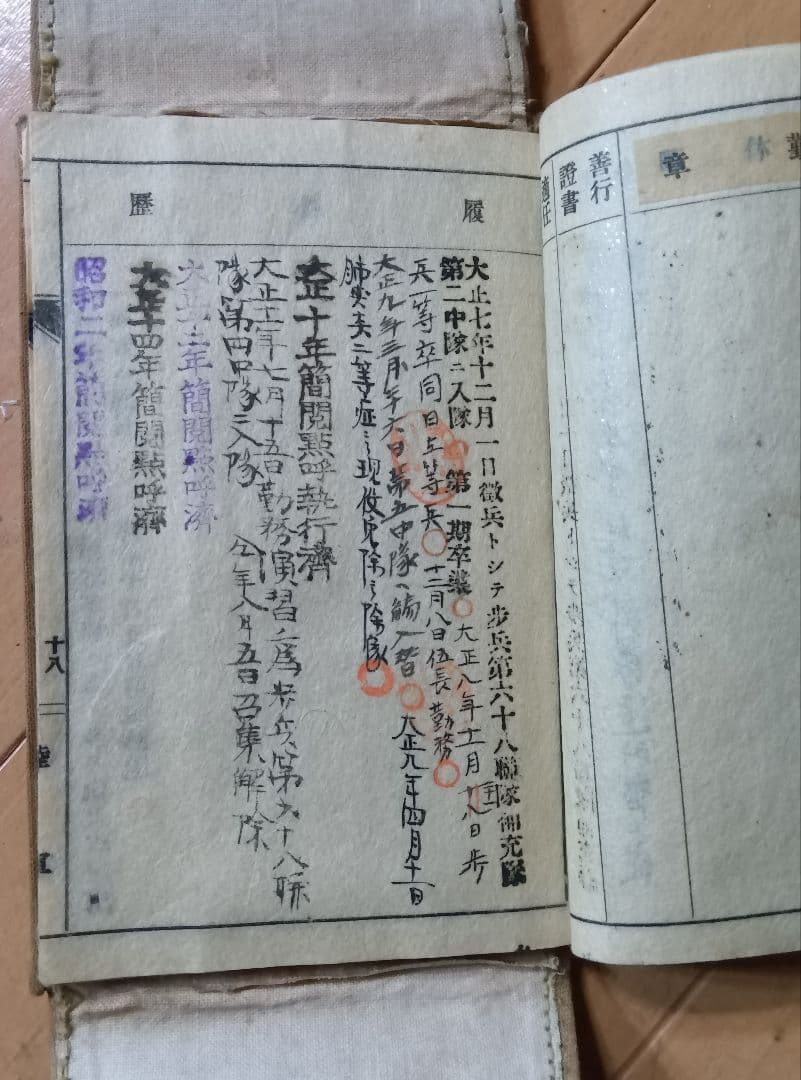 勤
章
善行
證書
適任
履歷
大正七年十二月一日徵兵トシテ步兵第六十八聯隊補充隊
第二中隊ニ入隊 第一期卒業 大正八年十一月 八日步
兵一等卒同日上等兵 十二月八日伍長勤務
大正九年三月 日第五中隊ヘ 大正九年四月十一日
肺尖炎二等症 現役免除 除隊
大正十年簡閱點呼執行濟
大正十一年七月十五日勤務演習ノ爲步兵第六十八聯
隊第四中隊ニ入隊 仝年八月五日召集解除
大正十二年簡閱點呼濟
大正十四年簡閱點呼濟
昭和二年簡閱點呼濟
十八